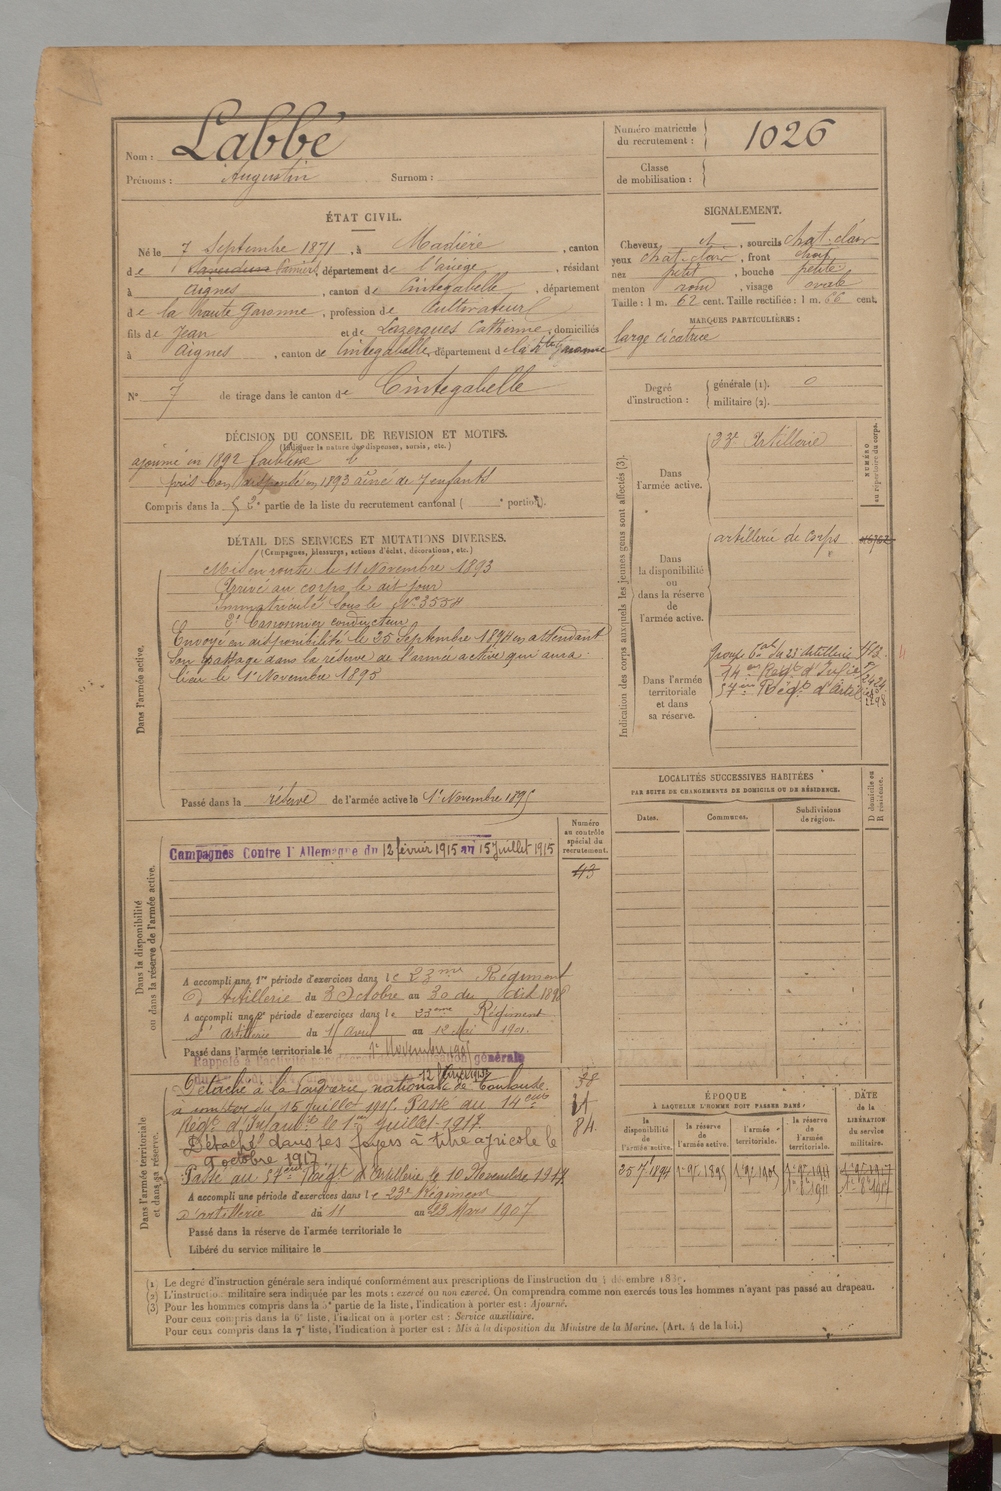 Nom : Labbé
Prénoms : Augustin Surnom :
Numéro matricule du recrutement : 1026
Classe de mobilisation :
ÉTAT CIVIL.
Né le 7 Septembre 1871, à Madière, canton
de Pamiers, département de l'ariège, résidant
à Aignes, canton de Cintegabelle, département
de la haute Garonne, profession de Cultivateur
fils de Jean et de Lazergues Catherine, domiciliés
à Aignes, canton de Cintegabelle, département d la hte Garonne
N° 7 de tirage dans le canton de Cintegabelle
SIGNALEMENT.
Cheveux et, sourcils chat. clair
yeux chat. clair, front
nez petit, bouche petite
menton rond, visage ovale
Taille : 1 m. 62 cent. Taille rectifiée : 1 m. 66 cent.
MARQUES PARTICULIÈRES :
large cicatrice
Degré d'instruction : générale (1). 0
militaire (2).
DÉCISION DU CONSEIL DE REVISION ET MOTIFS.
(Indiquer la nature des dispenses, sursis, etc.)
ajourné en 1892 faiblesse
pris bon dispensé en 1893 aîné de 7 enfants
Compris dans la 2e partie de la liste du recrutement cantonal ( e portion).
DÉTAIL DES SERVICES ET MUTATIONS DIVERSES.
(Campagnes, blessures, actions d'éclat, décorations, etc.)
Dans l'armée active.
Mis en route le 11 Novembre 1893
Arrivé au corps le dit jour
Immatriculé sous le N° 3554
2e Canonnier conducteur
Envoyé en disponibilité le 25 Septembre 1894 en attendant
son passage dans la réserve de l'armée active qui aura
lieu le 1er Novembre 1895
Passé dans la réserve de l'armée active le 1er Novembre 1895
Indication des corps auxquels les jeunes gens sont affectés (3).
NUMÉRO au répertoire du corps.
Dans l'armée active.
23e Artillerie
Dans la disponibilité ou dans la réserve de l'armée active.
artillerie de corps
Dans l'armée territoriale et dans sa réserve.
du 23e Artillerie
14em Régt d'Infie
57em Régt d'Artie
LOCALITÉS SUCCESSIVES HABITÉES
PAR SUITE DE CHANGEMENTS DE DOMICILE OU DE RÉSIDENCE.
Dates. Communes. Subdivisions de région. D domicile ou R résidence.
Dans la disponibilité ou dans la réserve de l'armée active.
Numéro au contrôle spécial du recrutement.
43
Campagnes Contre l'Allemagne du 12 février 1915 au 15 Juillet 1915
A accompli une 1re période d'exercices dans le 23me Régiment
d'Artillerie du 3 Octobre au 30 du dit 1898
A accompli une 2e période d'exercices dans le 23eme Régiment
d'artillerie du 15 avril au 12 Mai 1901
Passé dans l'armée territoriale le 1er Novembre 1905
Rappelé à l'activité générale
12 février 1915
Dans l'armée territoriale et dans sa réserve.
Détaché à la Poudrerie nationale de Toulouse
à compter du 15 juillet 1915. Passé au 14eme
Régt d'Infanie le 1er Juillet 1917.
Détaché dans ses foyers à titre agricole le
9 octobre 1917
Passé au 57eme Régt d'Artillerie le 10 Novembre 1917
A accompli une période d'exercices dans le 23e Régiment
d'artillerie du 11 au 23 Mars 1907
Passé dans la réserve de l'armée territoriale le
Libéré du service militaire le
38
84
ÉPOQUE
À LAQUELLE L'HOMME DOIT PASSER DANS :
la disponibilité de l'armée active.
la réserve de l'armée active.
l'armée territoriale.
la réserve de l'armée territoriale.
DATE de la LIBÉRATION du service militaire.
25 7e 1894 1er 9e 1895 1er 9e 1905 1er 9e 1911
(1) Le degré d'instruction générale sera indiqué conformément aux prescriptions de l'instruction du 4 décembre
(2) L'instruction militaire sera indiquée par les mots : exercé ou non exercé. On comprendra comme non exercés tous les hommes n'ayant pas passé au drapeau.
(3) Pour les hommes compris dans la 5e partie de la liste, l'indication à porter est : Ajourné.
Pour ceux compris dans la 6e liste, l'indication à porter est : Service auxiliaire.
Pour ceux compris dans la 7e liste, l'indication à porter est : Mis à la disposition du Ministre de la Marine. (Art. 4 de la loi.)